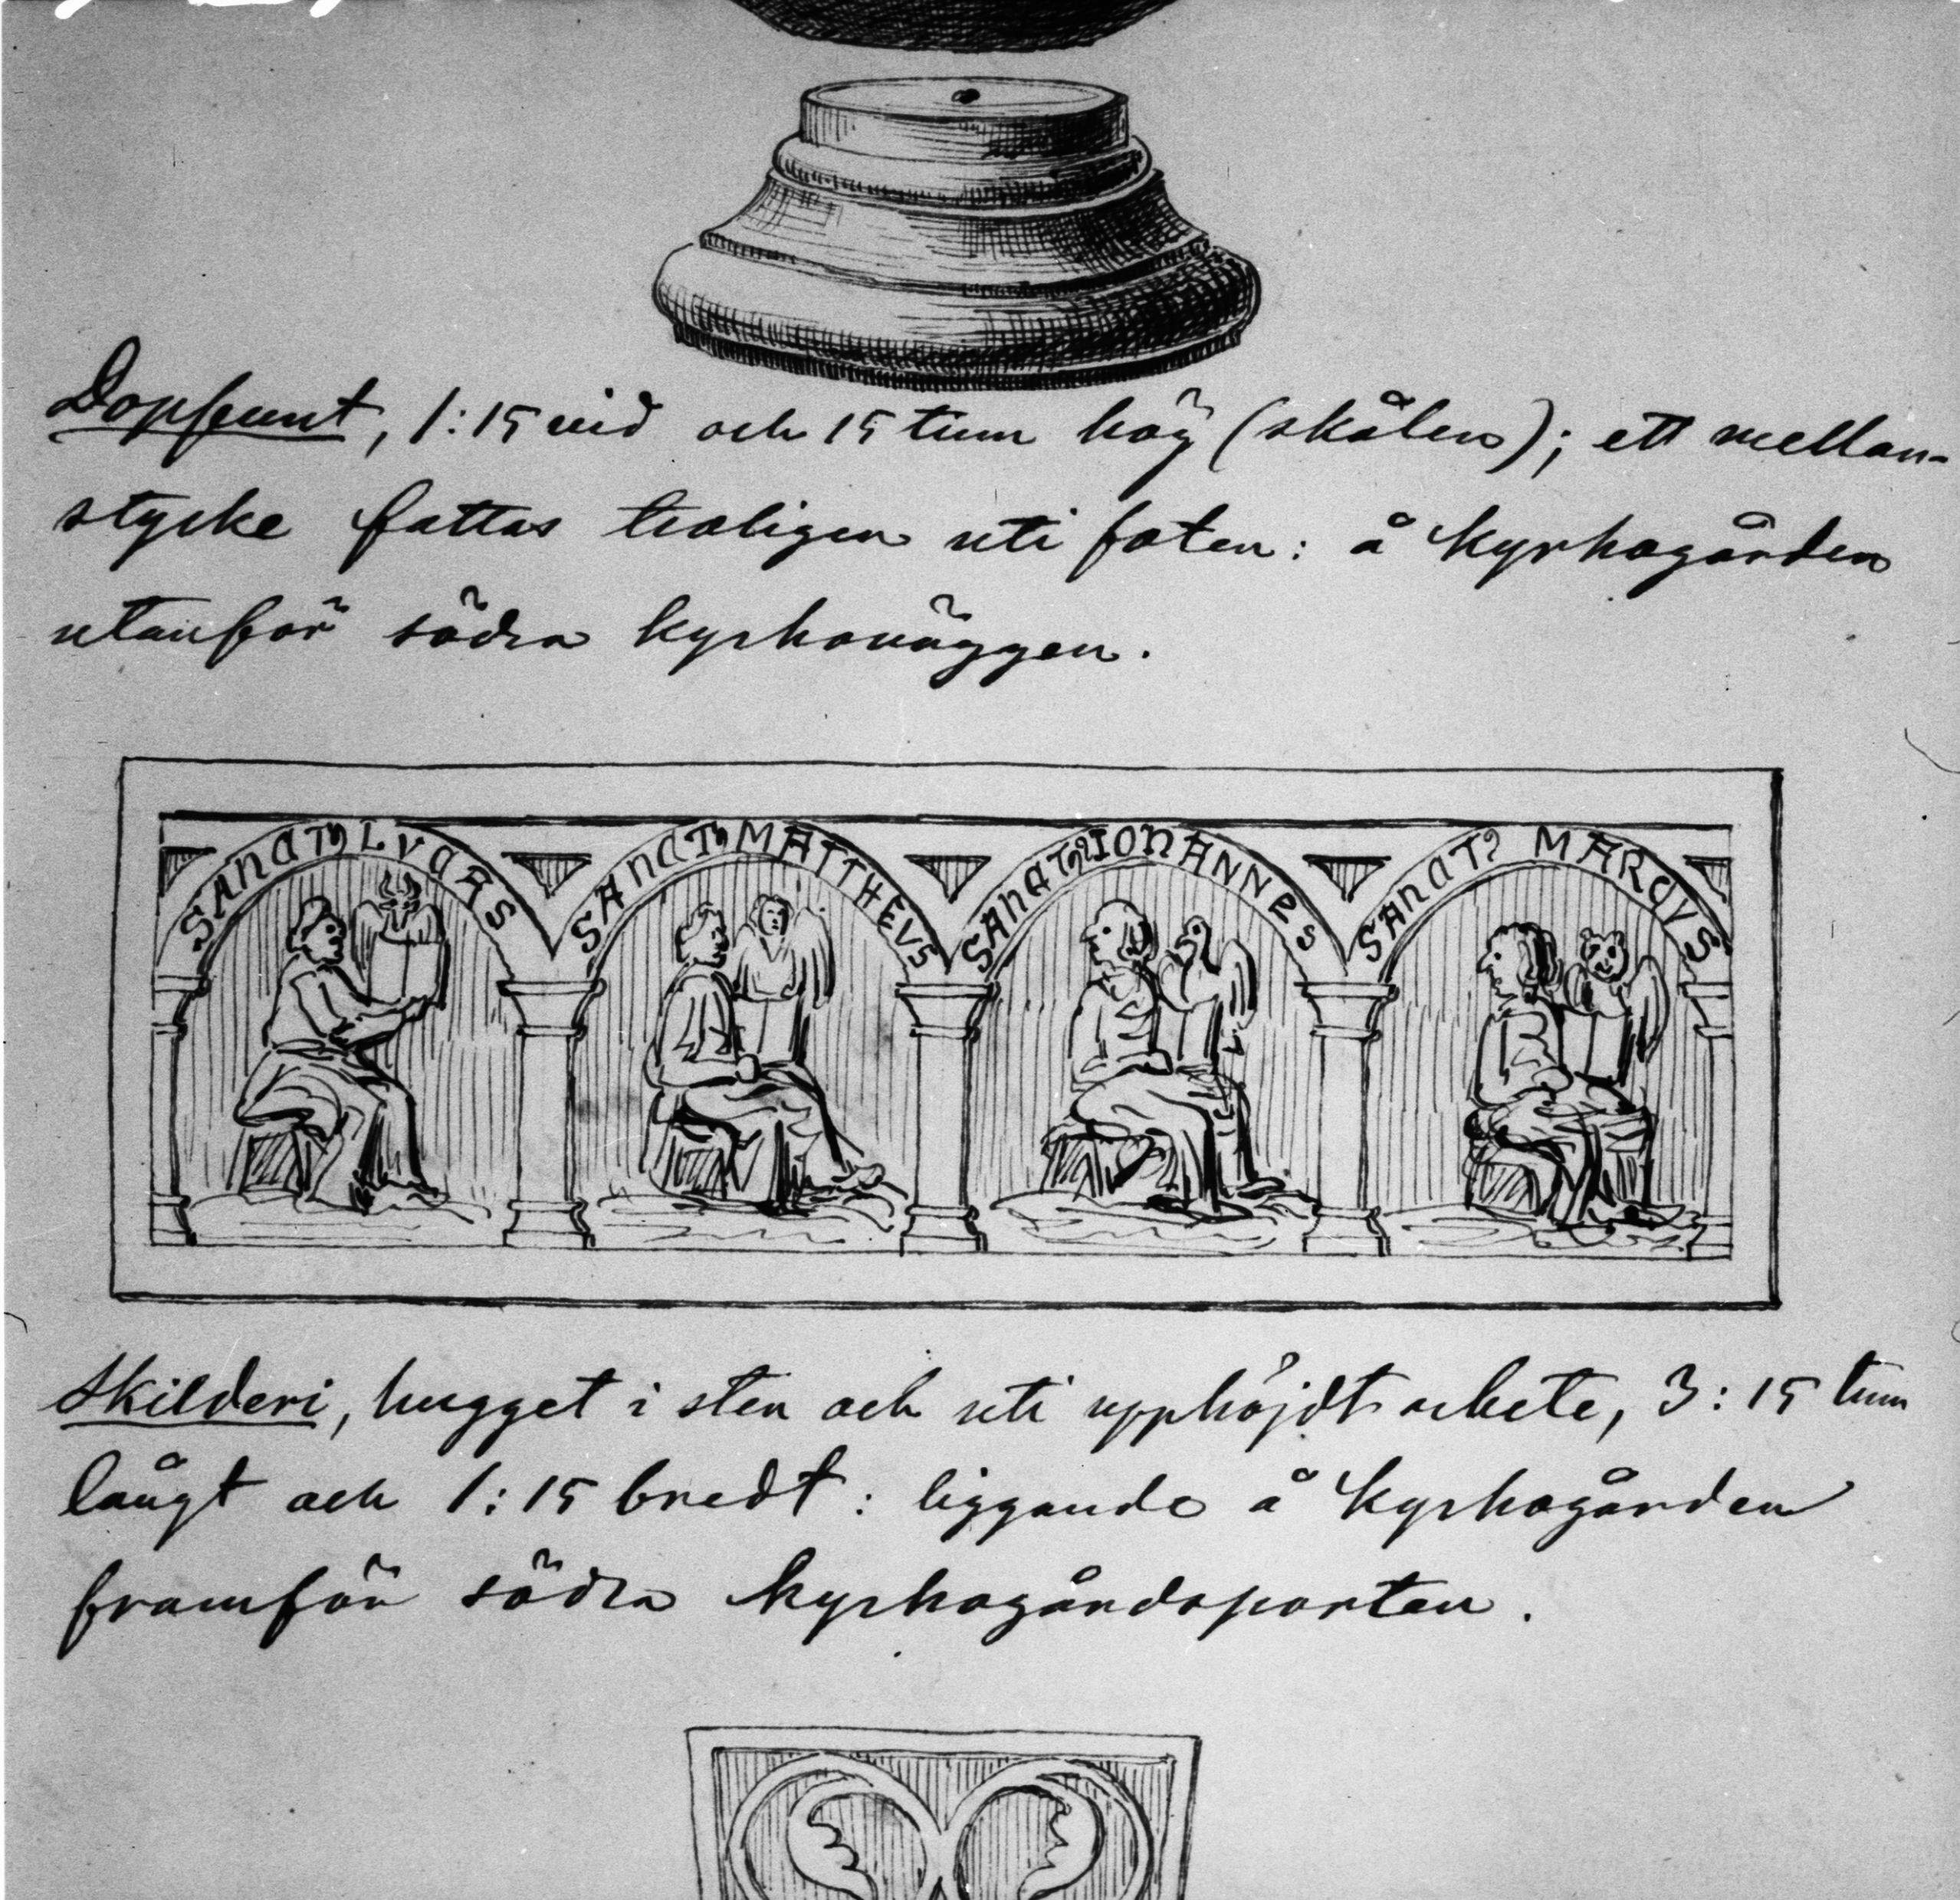 Dopfunt, 1:15 vid och 15 tum hög (skålen); ett mellan-
stycke fattas troligen uti foten: å kyrkogården
utanför södra kyrkoväggen.
SANCTꝰ LVCAS SANCTꝰ MATTHEVS SANCTꝰ IOHANNES SANCTꝰ MARCVS
Skilderi, hugget i sten och uti upphöjdt arbete, 3:15 tum
långt och 1:15 bredt: liggande å kyrkogården
framför södra kyrkogårdsporten.